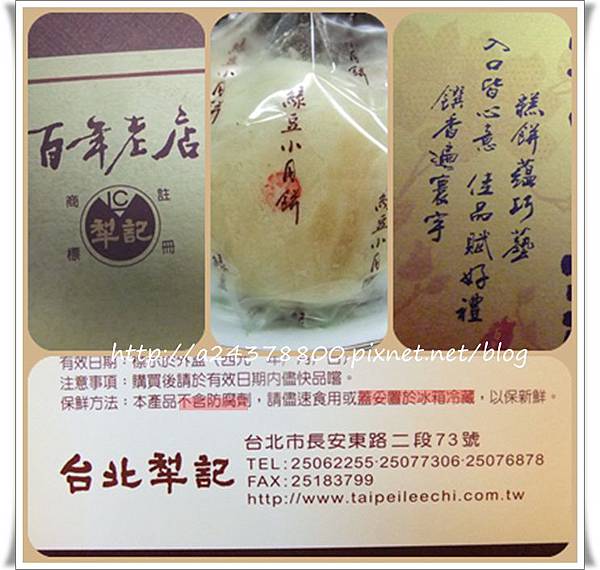 百年老店
商標 IC 註冊
犁記
綠豆小月餅
綠豆小月餅
糕餅蘊巧藝
入口皆心意 佳品賦好禮
饌香遍寰宇
http://a24378800.pixnet.net/blog
有效日期：標示於外盒（西元 年）
注意事項：購買後請於有效日期內儘快品嚐。
保鮮方法：本產品不含防腐劑，請儘速食用或蓋妥置於冰箱冷藏，以保新鮮。
台北犁記
台北市長安東路二段73號
TEL：25062255·25077306·25076878
FAX：25183799
http://www.taipeileechi.com.tw